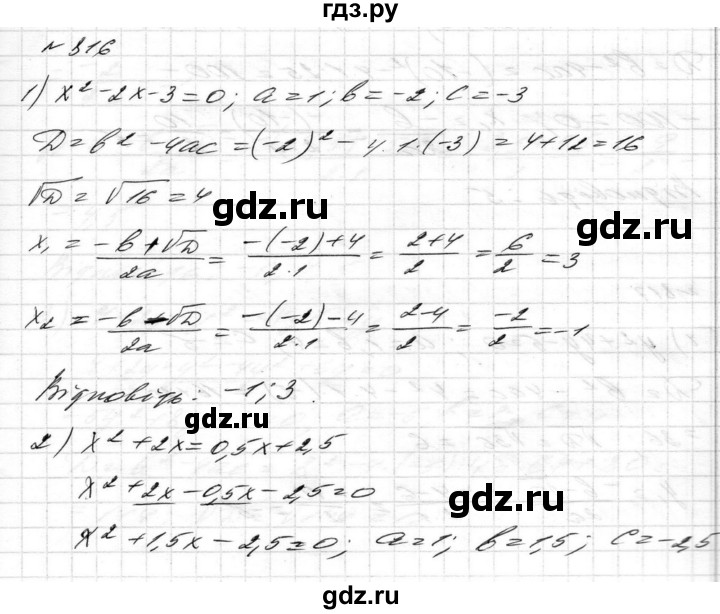 гдз.ру
№ 316
1) x² - 2x - 3 = 0; a = 1; b = -2; c = -3
D = b² - 4ac = (-2)² - 4·1·(-3) = 4 + 12 = 16
√D = √16 = 4
x₁ = (-b + √D)/2a = (-(-2) + 4)/2·1 = (2 + 4)/2 = 6/2 = 3
x₂ = (-b - √D)/2a = (-(-2) - 4)/2·1 = (2 - 4)/2 = -2/2 = -1
Відповідь: -1; 3.
2) x² + 2x = 0,5x + 2,5
x² + 2x - 0,5x - 2,5 = 0
гдз.ру
x² + 1,5x - 2,5 = 0; a = 1; b = 1,5; c = -2,5
гдз.ру